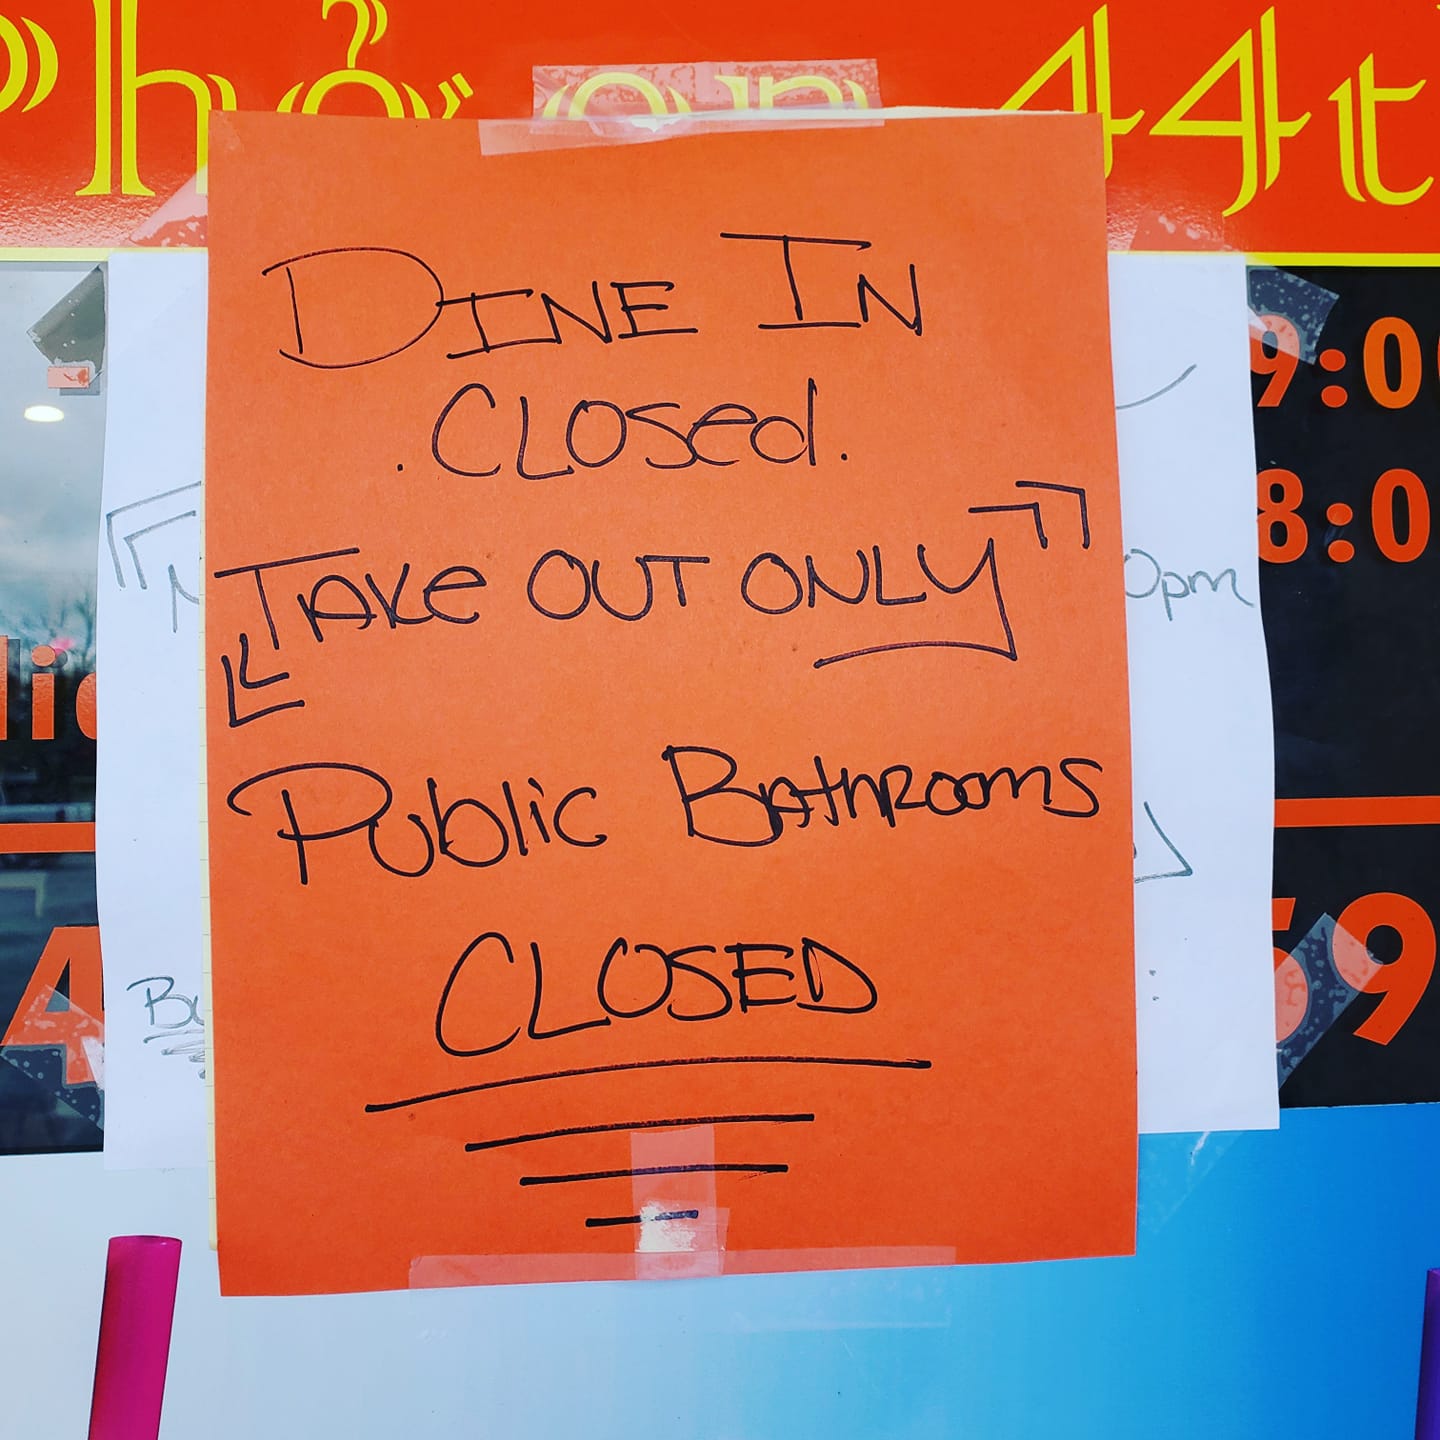 Phở on 44t
DINE IN
.CLOSed.
TAKe OUT ONLY
PUbliC BAThROOmS
CLOSED
9:0
8:0
0pm
59